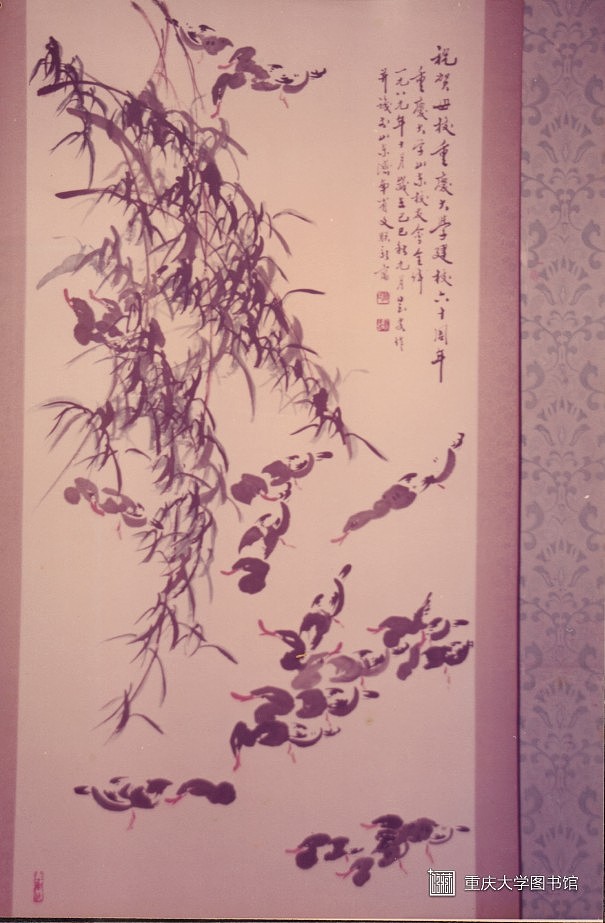 祝贺母校重庆大学建校六十周年
重庆大学山东校友会全体
一九八九年十月岁在己巳秋九月
并识于山东济南省文联
重庆大学图书馆